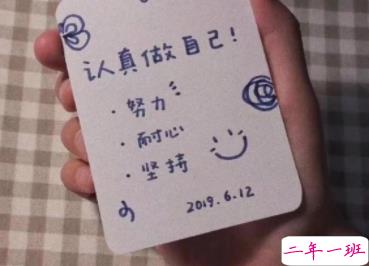 认真做自己！
·努力
·耐心
·坚持
2019.6.12
二年一班